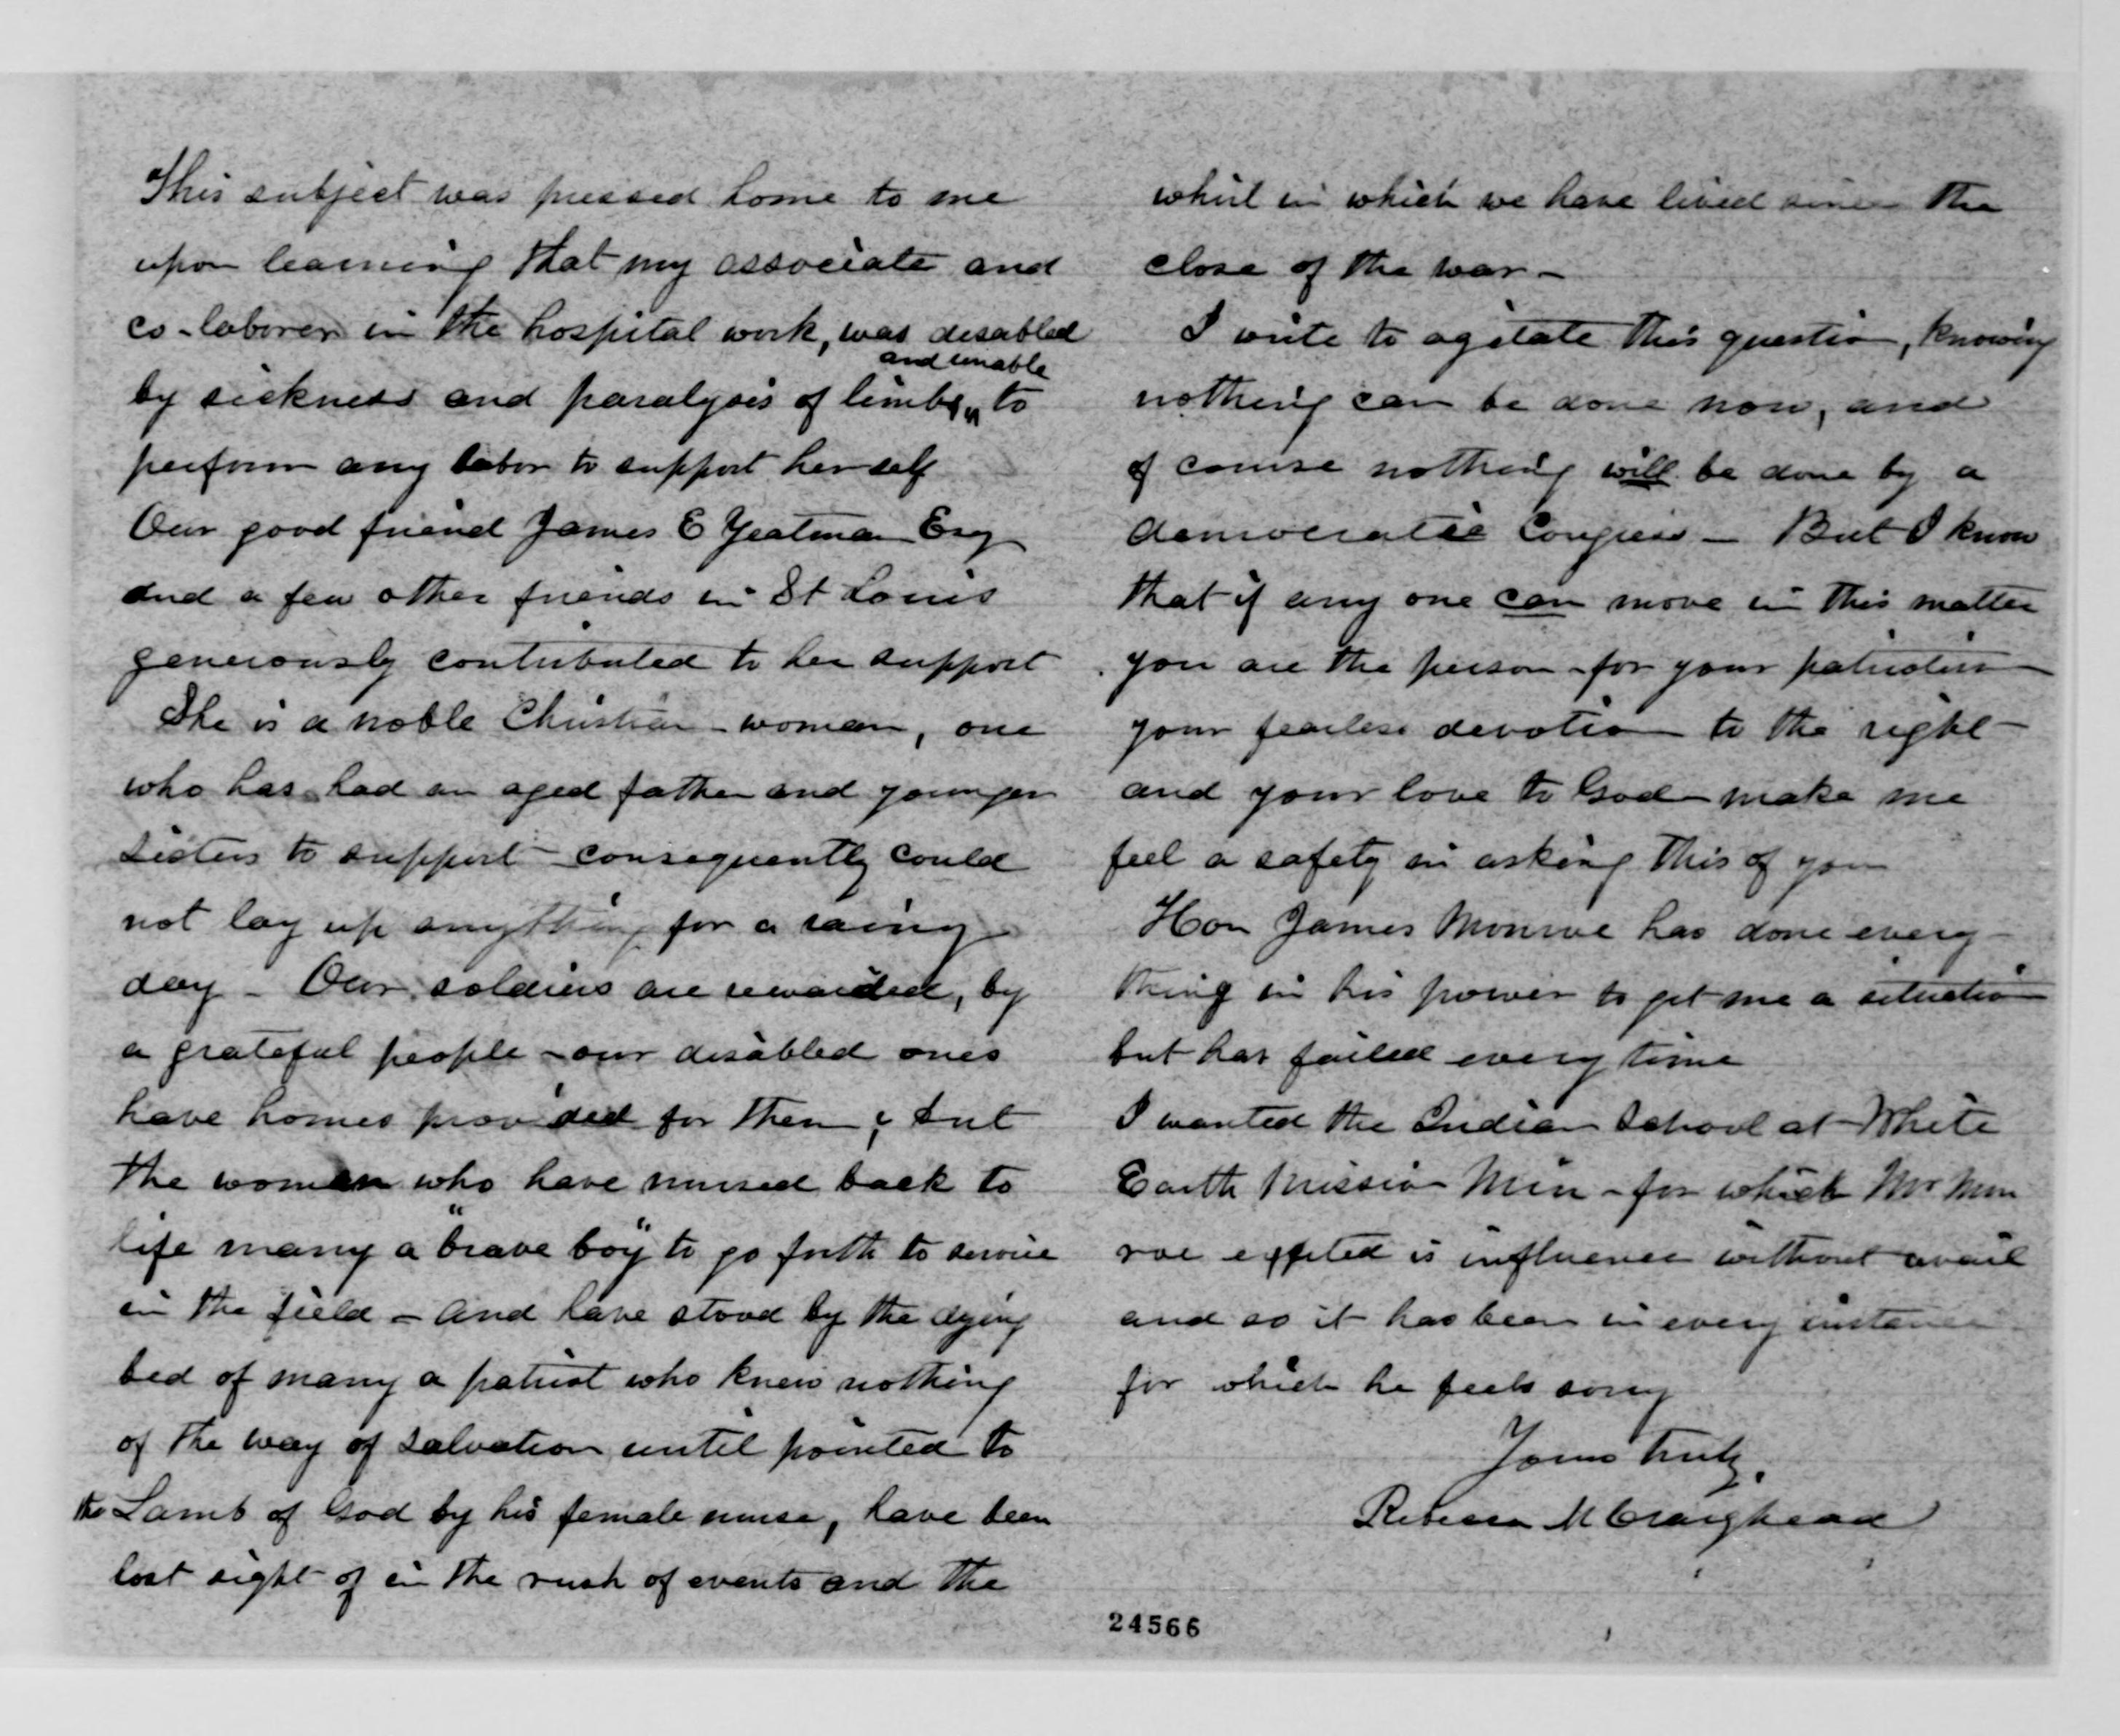 This subject was pressed home to me
upon learning that my associate and
co-laborer in the hospital work, was disabled
and unable
by sickness and paralysis of limbs, to
perform any labor to support herself
Our good friend James E Yeatman Esq
and a few other friends in St Louis
generously contributed to her support
She is a noble Christian woman, one
who has had an aged father and younger
sisters to support - consequently could
not lay up anything for a rainy
day - Our soldiers are rewarded, by
a grateful people - our disabled ones
have homes provided for them, but
the women who have nursed back to
life many a "brave boy" to go forth to service
in the field - and have stood by the dying
bed of many a patriot who knew nothing
of the way of salvation until pointed to
the Lamb of God by his female nurse, have been
lost sight of in the rush of events and the
whirl in which we have lived since the
close of the war -
I write to agitate this question, knowing
nothing can be done now, and
of course nothing will be done by a
democratic Congress - But I know
that if any one can move in this matter
you are the person - for your patriotism
your fearless devotion to the right -
and your love to God - make me
feel a safety in asking this of you
Hon James Monroe has done every-
thing in his power to get me a situation
but has failed every time
I wanted the Indian School at White
Earth Mission Min - for which Mr Mon
roe is influence without avail
and so it has been in every instance
for which he feels sorry
Yours truly,
Rebecca M Craighead
24566